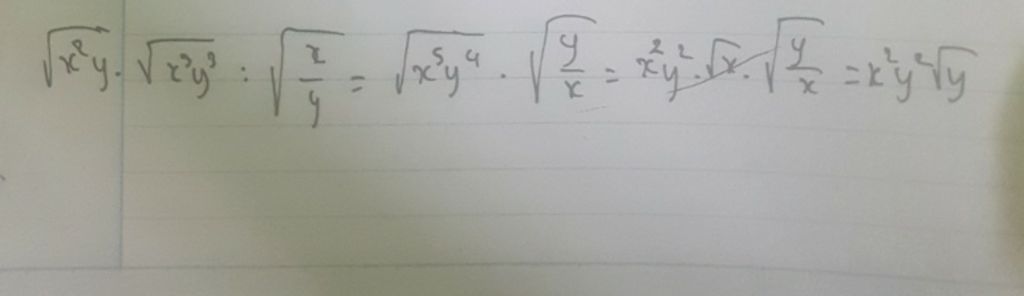 √(x²y) · √(x³y³) : √(x/y) = √(x⁵y⁴) · √(y/x) = x²y² · √x · √(y/x) = x²y²√y